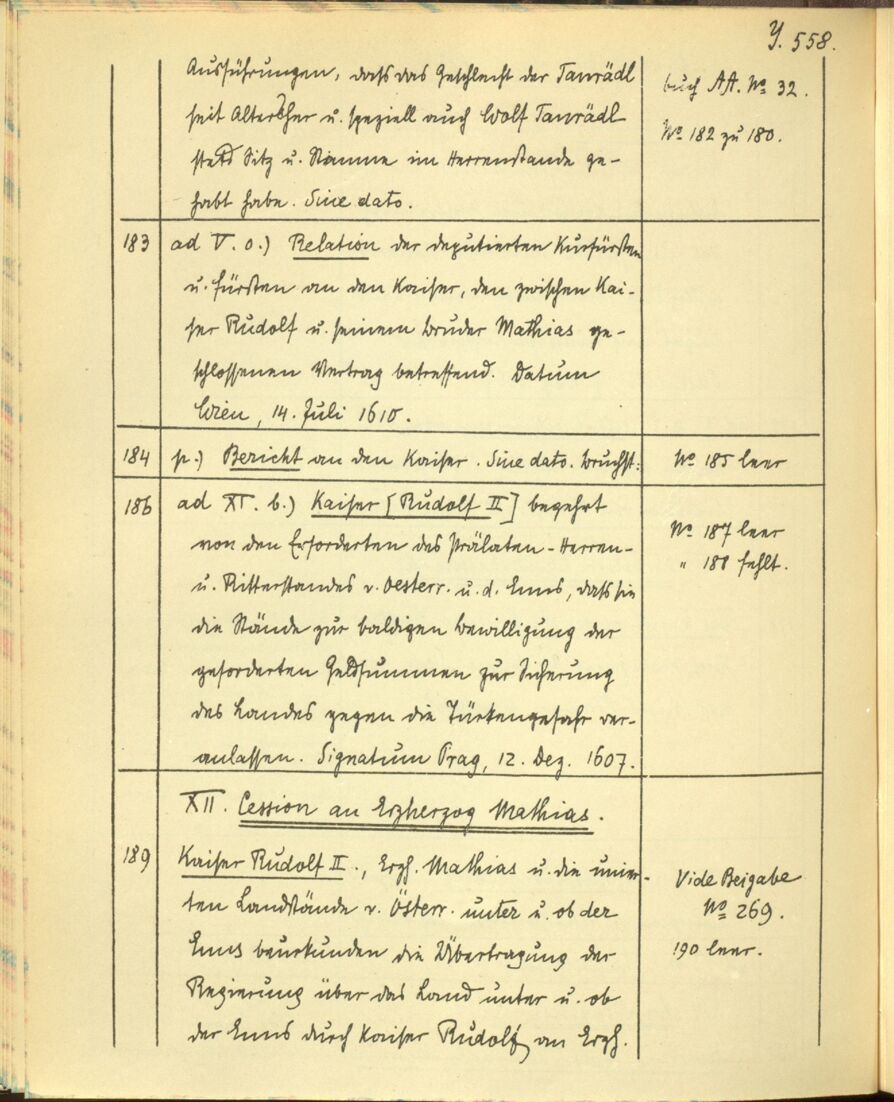 Y. 558.
Ausführungen, daß das Geschlecht der Tanrädl
seit Altersher u. speziell auch Wolf Tanrädl
stets Sitz u. Stimme im Herrenstande ge-
habt habe. Sine dato.
buch AA. No 32.
No 182 zu 180.
183 ad V. o.) Relation der deputierten Kurfürsten
u. Fürsten an den Kaiser, den zwischen Kai-
ser Rudolf u. seinem Bruder Mathias ge-
schlossenen Vertrag betreffend. Datum
Wien, 14. Juli 1610.
184 p.) Bericht an den Kaiser. Sine dato. Bruchst. No 185 leer
186 ad XI. b.) Kaiser [Rudolf II] begehrt
von den Erforderten des Prälaten-Herren-
u. Ritterstandes v. Oesterr. u. d. Enns, daß sie
die Stände zur baldigen Bewilligung der
geforderten Geldsummen zur Sicherung
des Landes gegen die Türkengefahr ver-
anlassen. Signatum Prag, 12. Dez. 1607.
No 187 leer
" 188 fehlt.
XII. Cession an Erzherzog Mathias.
189 Kaiser Rudolf II., Erzh. Mathias u. die unier-
ten Landstände v. Österr. unter u. ob der
Enns beurkunden die Übertragung der
Regierung über das Land unter u. ob
der Enns durch Kaiser Rudolf an Erzh.
Vide Beigabe
No 269.
190 leer.